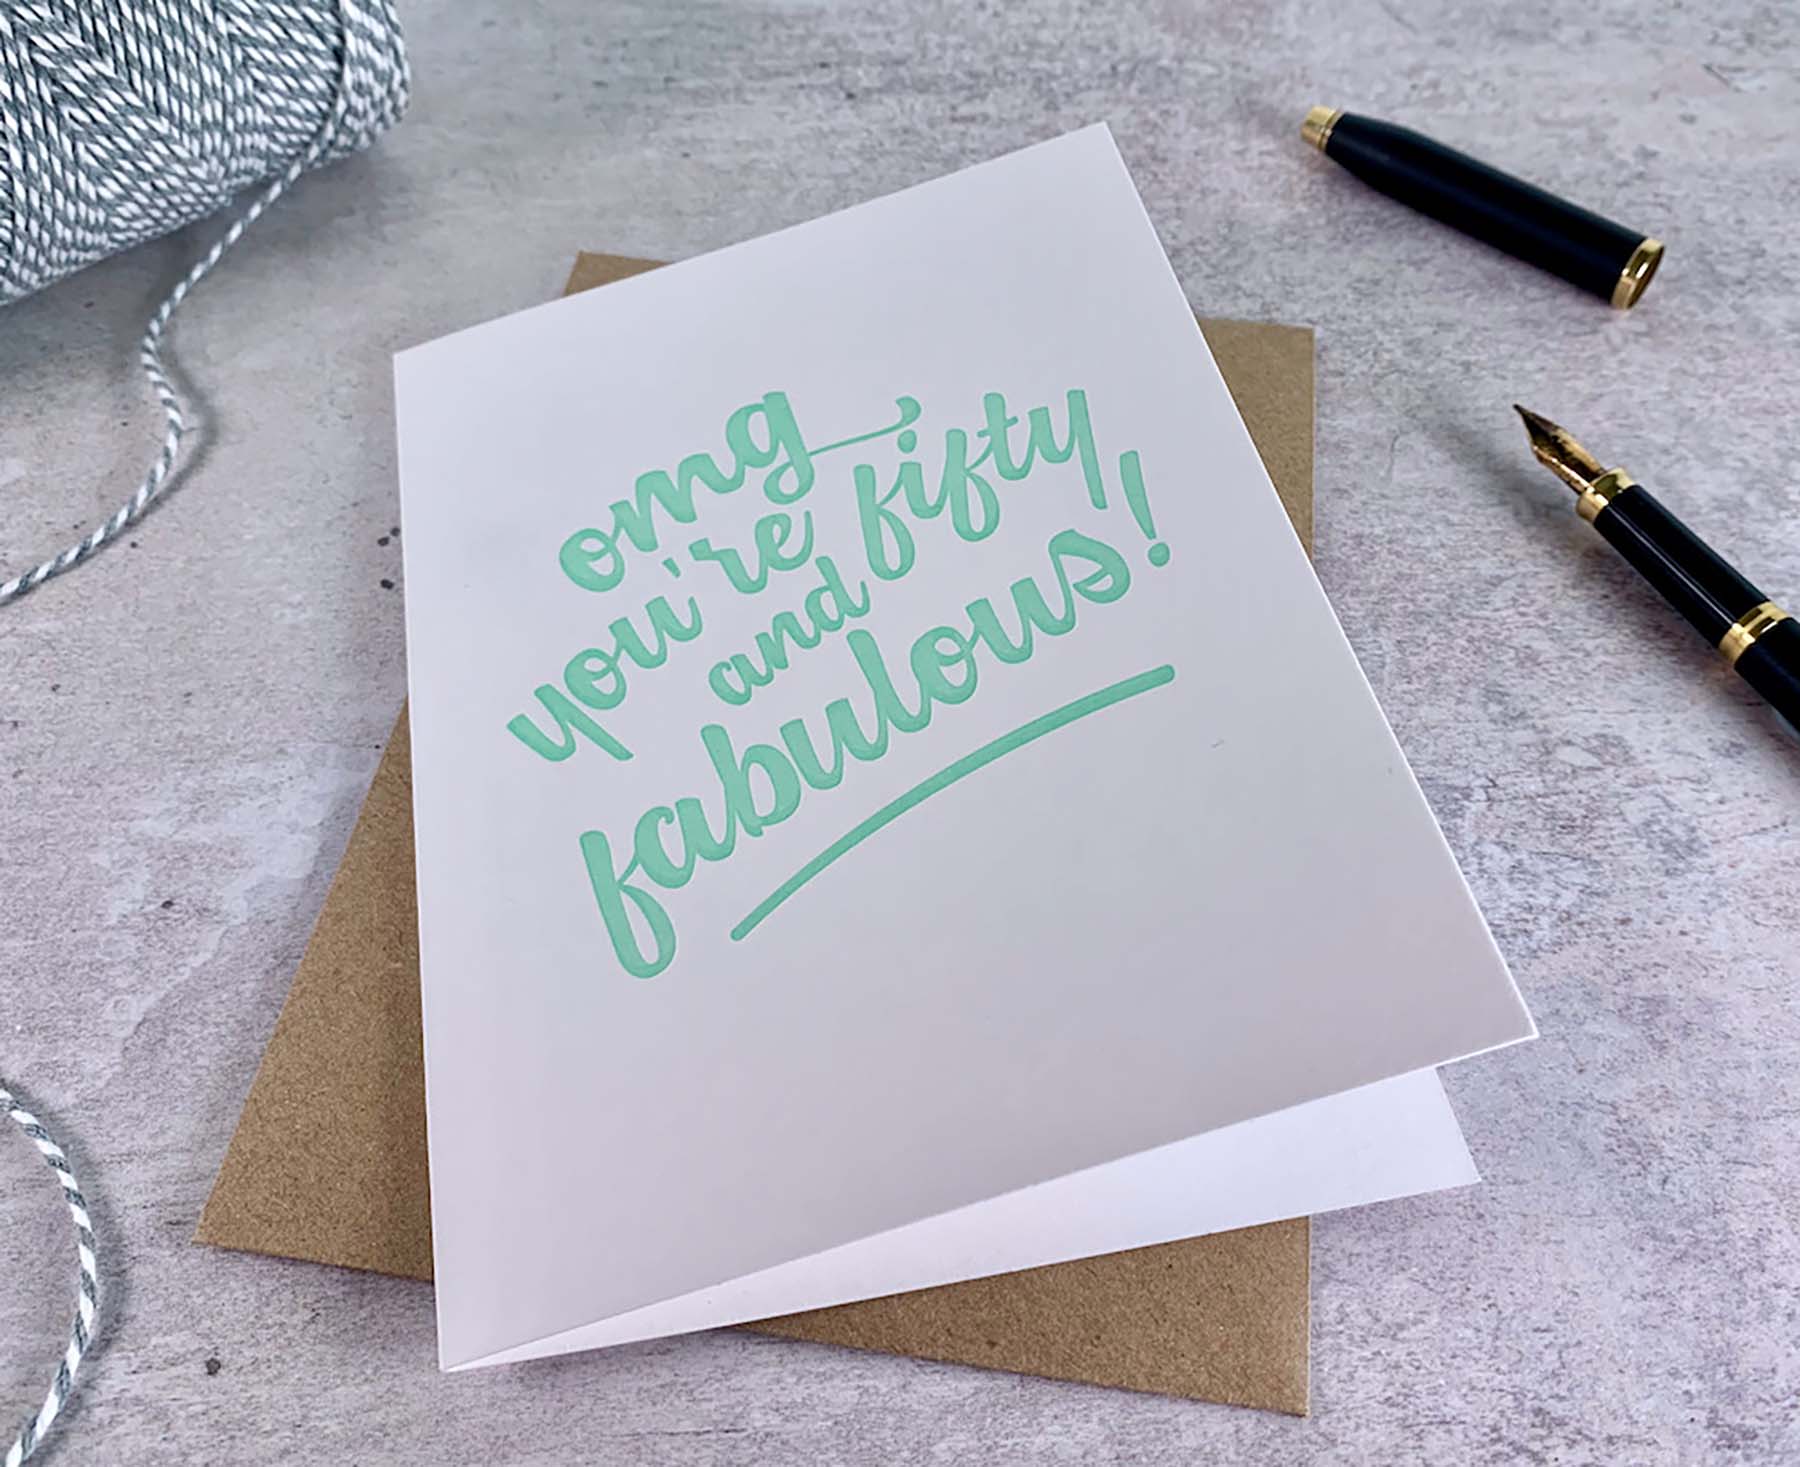 omg
you're fifty
and
fabulous!